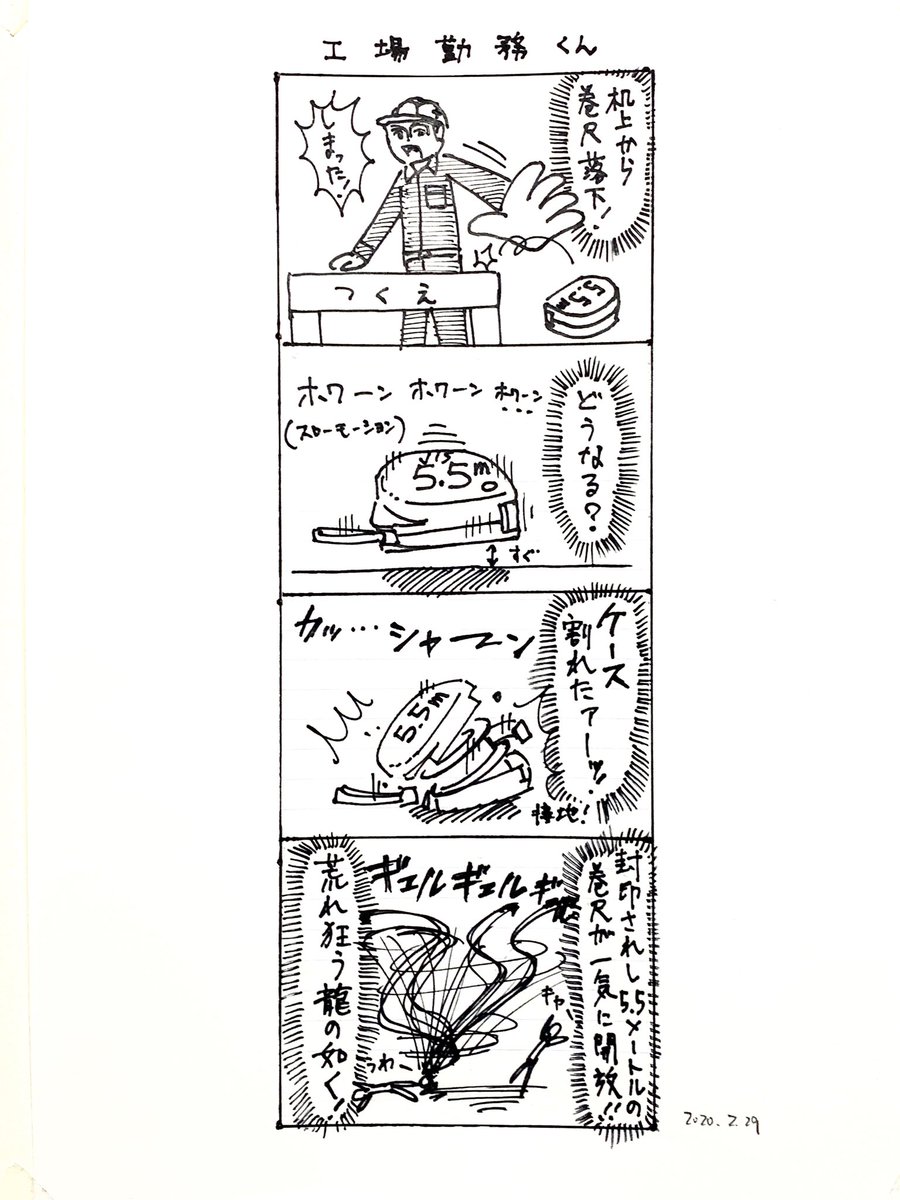 工場勤務くん
机上から
巻尺落下!
しまった!
つくえ
5.5
m
どうなる?
ホワーン ホワーン ホワーン…
(スローモーション)
5.5m
すぐ
ケース
割れたァーッ!
カッ…シャーーン
5.5m
接地!
封印されし5.5メートルの
巻尺が一気に開放!!
ギュルギュルギュ
キャ
うわ
荒れ狂う龍の如く!
2020.2.29